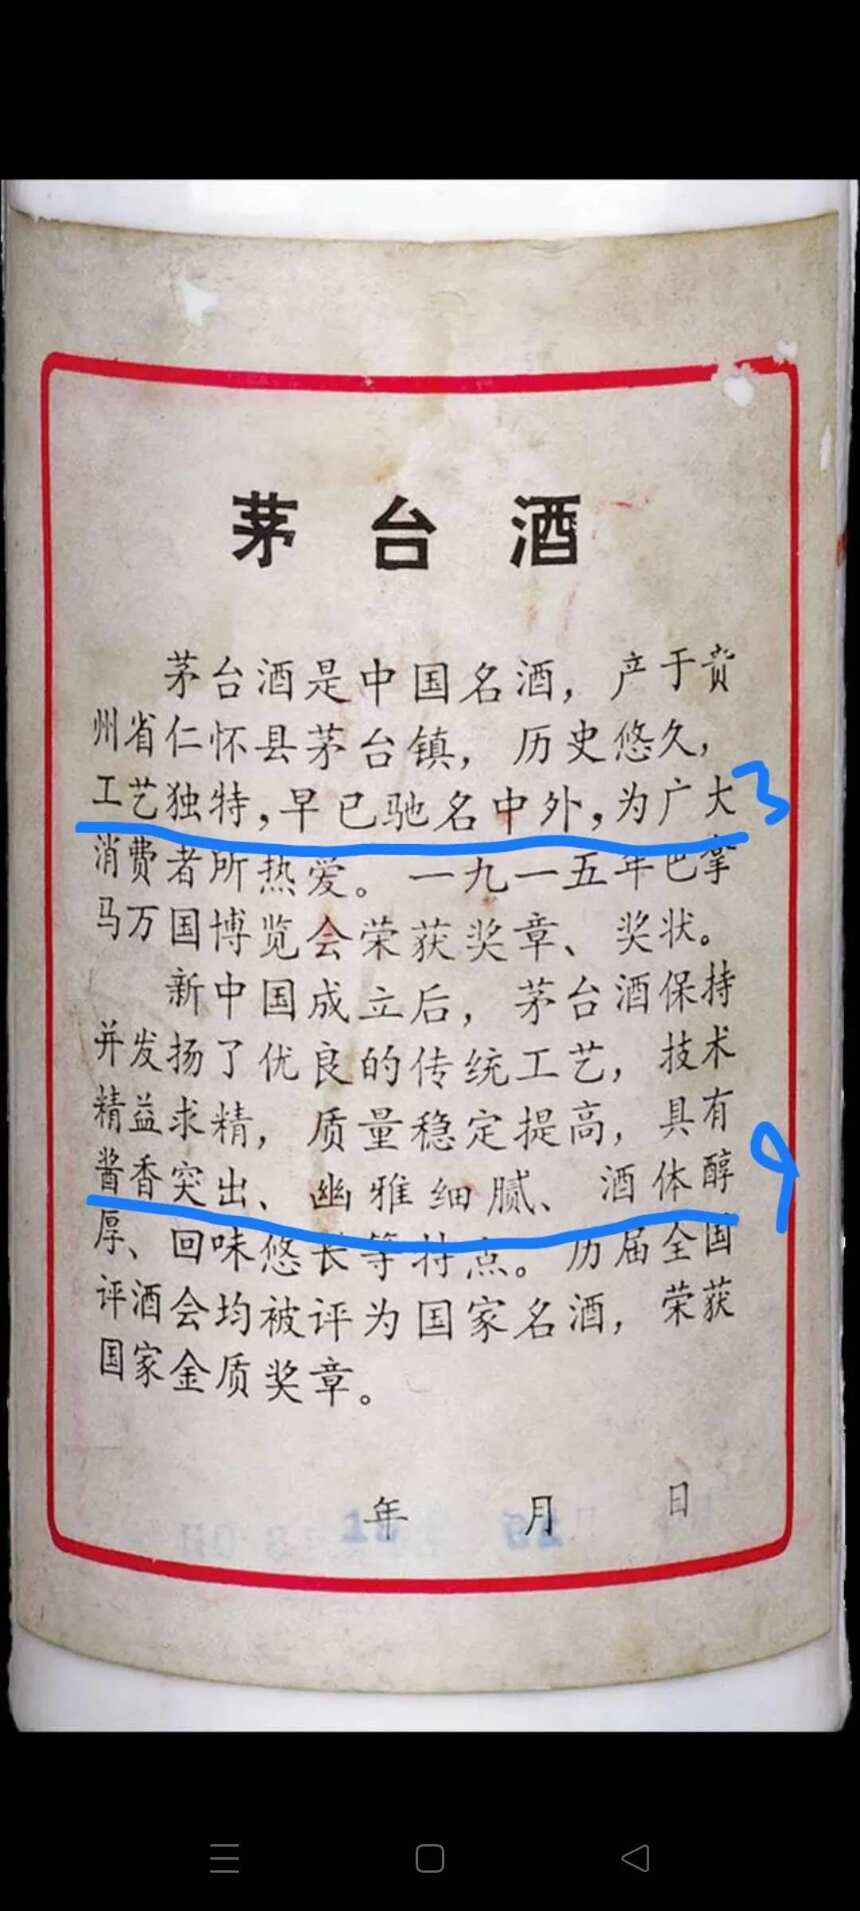 茅台酒
茅台酒是中国名酒，产于贵
州省仁怀县茅台镇，历史悠久，
工艺独特，早已驰名中外，为广大
3
消费者所热爱。一九一五年巴拿
马万国博览会荣获奖章、奖状。
新中国成立后，茅台酒保持
并发扬了优良的传统工艺，技术
精益求精，质量稳定提高，具有
酱香突出、幽雅细腻、酒体醇
9
厚、回味悠长等特点。历届全国
评酒会均被评为国家名酒，荣获
国家金质奖章。
年 月 日